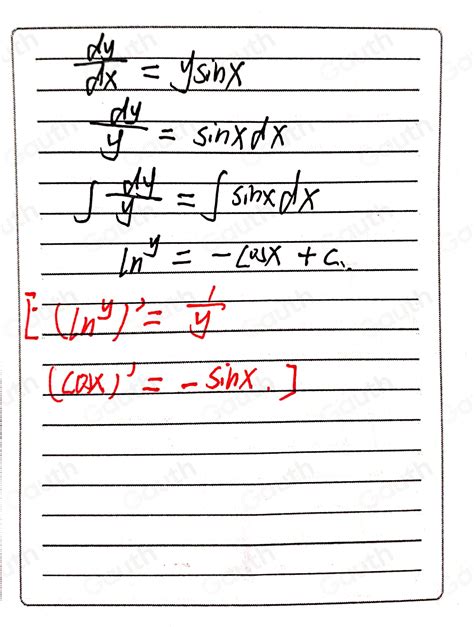 dy/dx = y sinx
dy/y = sinx dx
∫ dy/y = ∫ sinx dx
ln^y = -cosx + C.
[ (ln^y)' = 1/y
(cosx)' = -sinx. ]